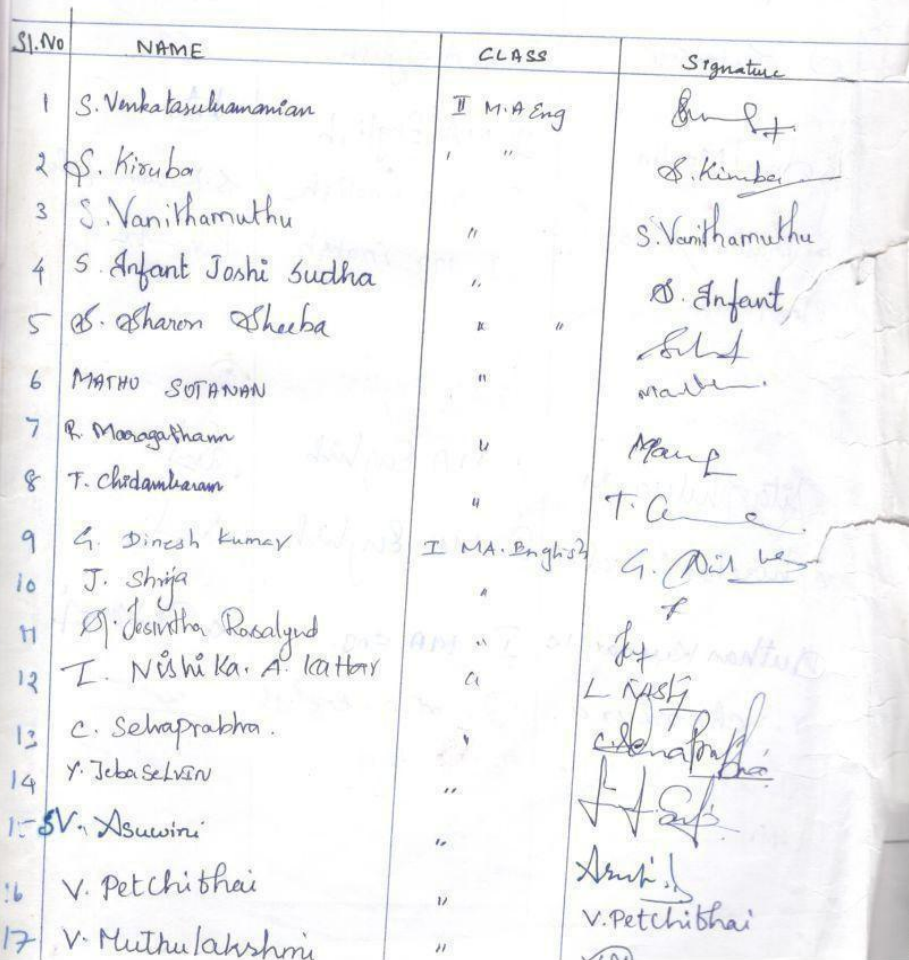 Sl.No NAME CLASS Signature
1 S. Venkatasubramanian II M.A Eng
2 S. Kiruba " " S. Kiruba
3 S. Vanithamuthu " S. Vanithamuthu
4 S. Infant Joshi Sudha " S. Infant
5 S. Sharon Sheeba " "
6 MATHU SOTANAN "
7 R. Maragatham "
8 T. Chidambaram " T.
9 G. Dinesh Kumar I MA. English G.
10 J. Shrija "
11 Jesintha Rosalynd "
12 I. Nishika. A. Kattar "
13 C. Selvaprabha. " C. Selvaprabha
14 Y. Jeba SELVIN "
15 V. Asuwini "
16 V. Petchithai " V. Petchithai
17 V. Muthulakshmi "